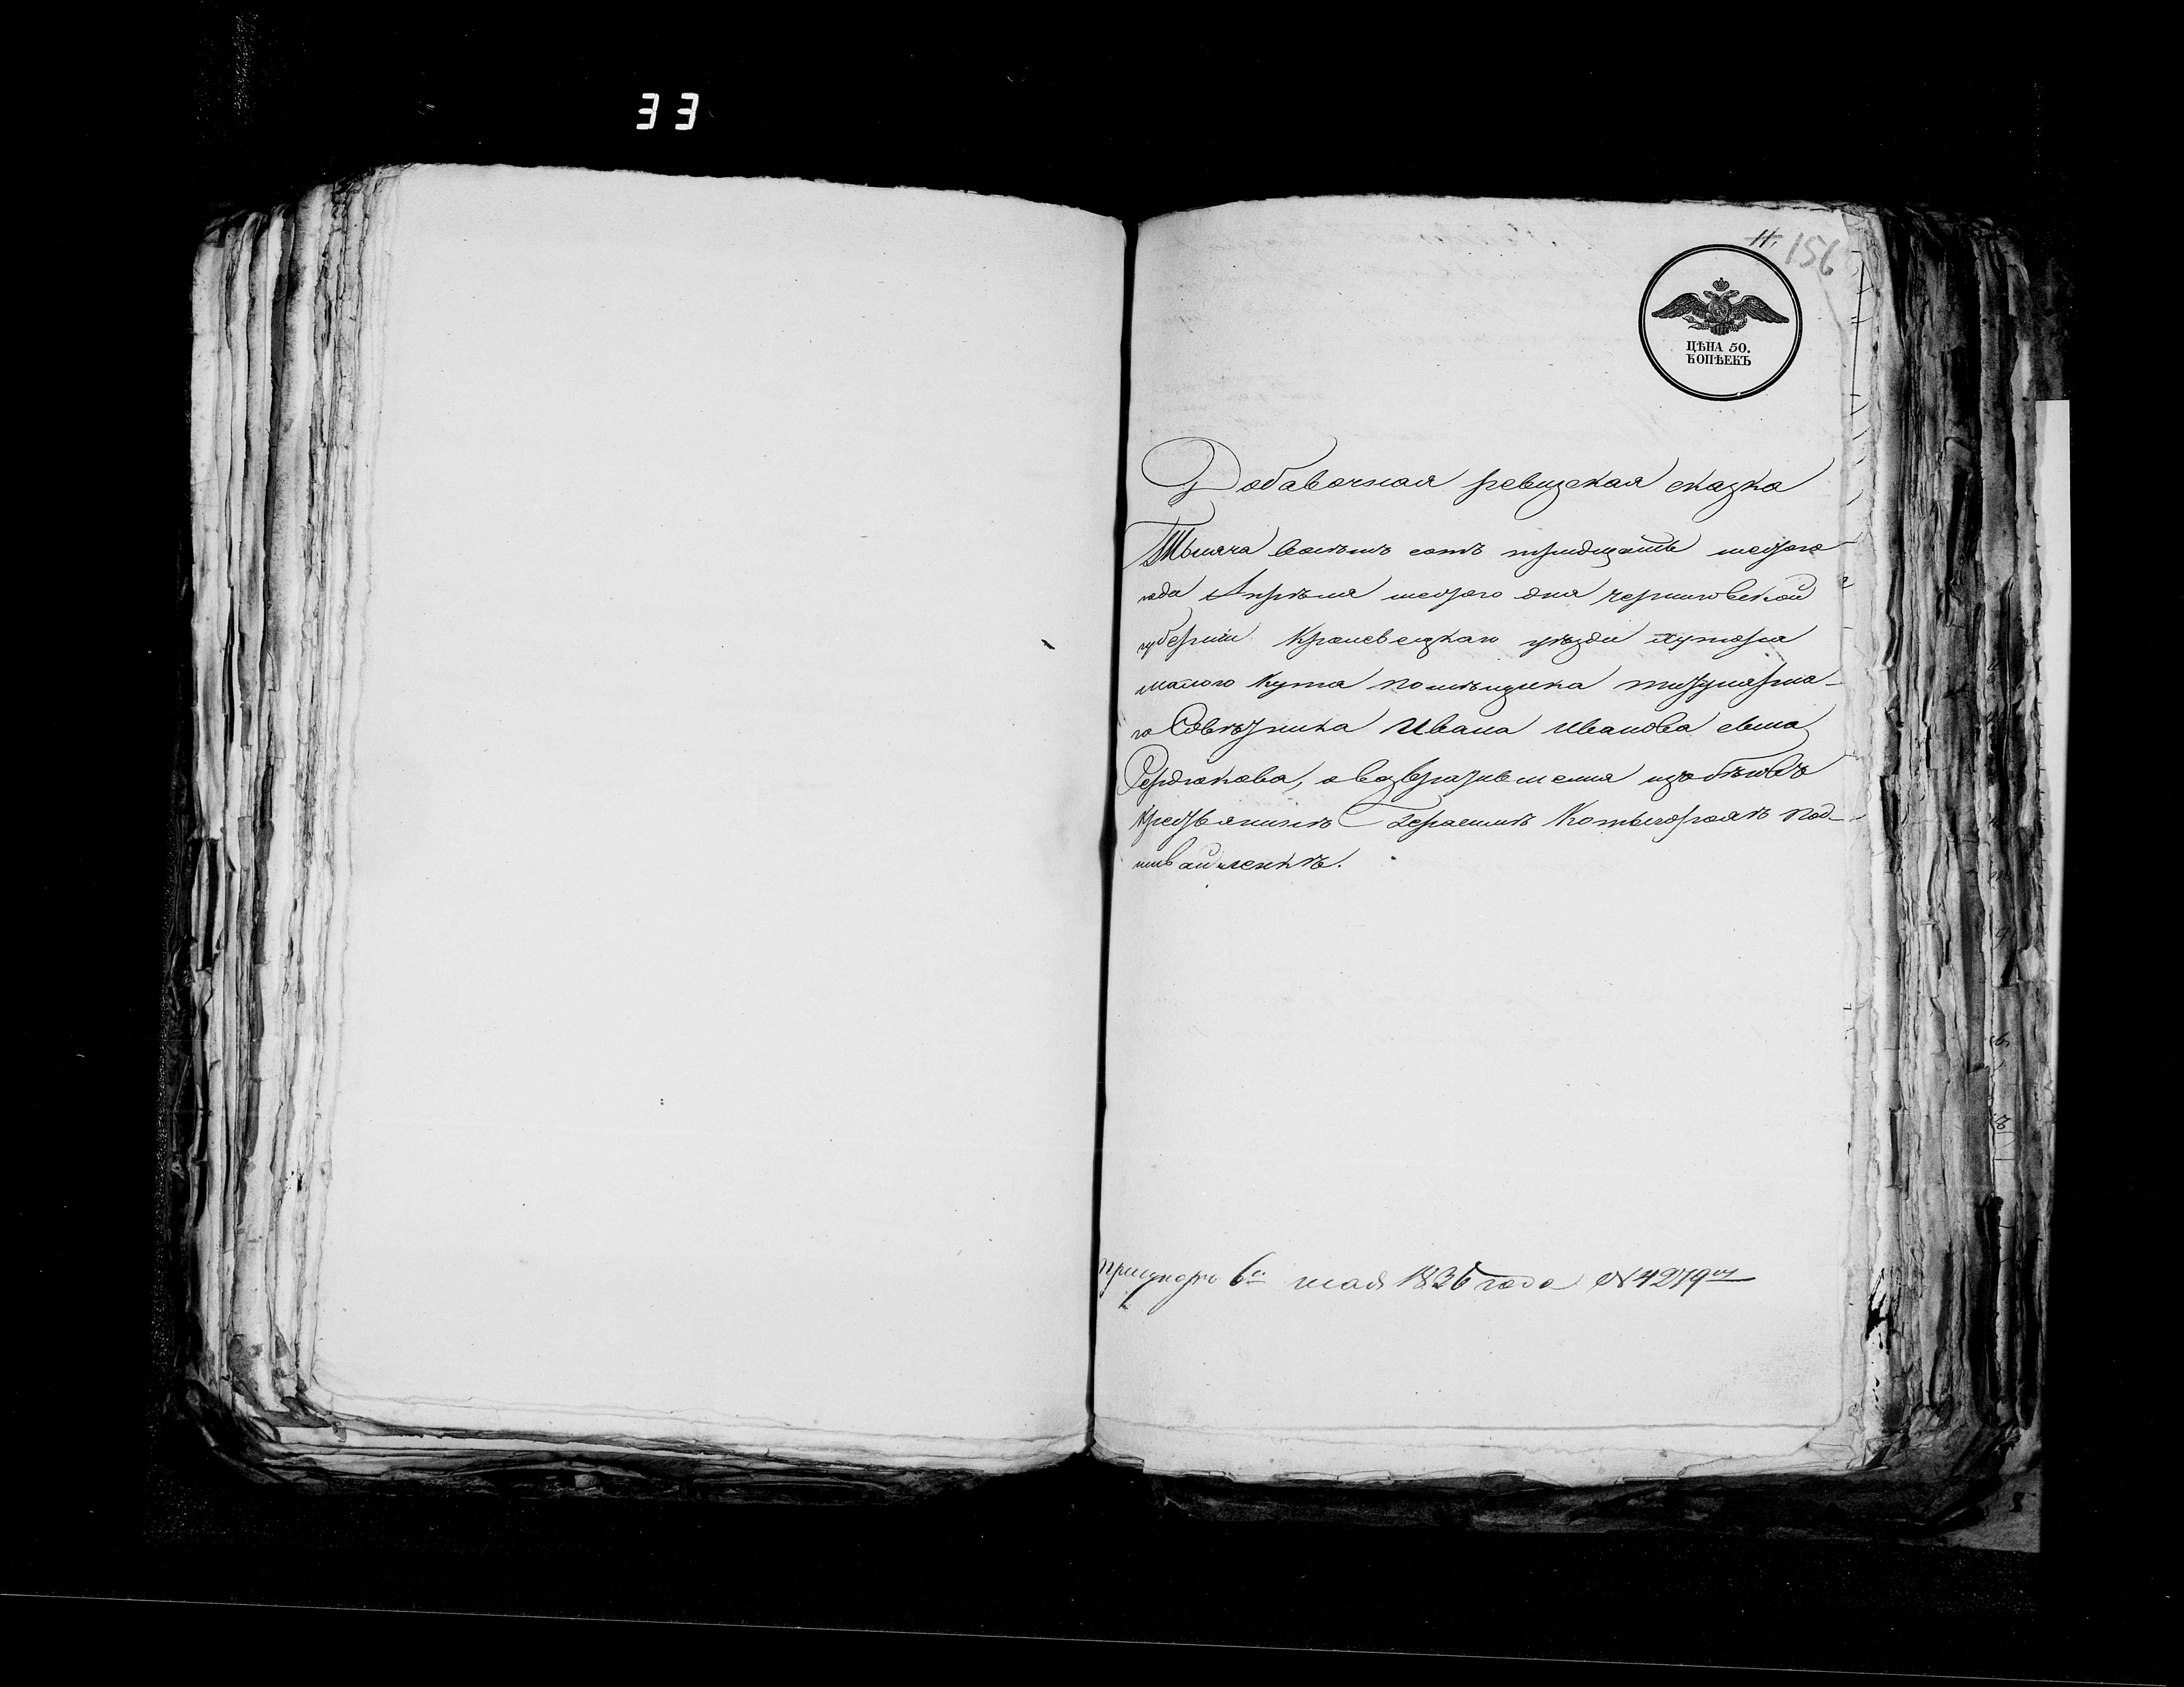 33
11. 156
ЦѢНА 50.
КОПѢЕКЪ
Добавочная ревизская сказка
Тысяча восемъ сотъ тридцать шестого
года Апрѣля шестого дня черниговской
губерніи Кролевецкаго уѣзда хутора
малого Кута помѣщика титулярна-
го Совѣтника Ивана Иванова сына
Сердюкова, о возвратившемся изъ бѣговъ
крестьянинѣ Герасимѣ
6го мая 1836 года №4279